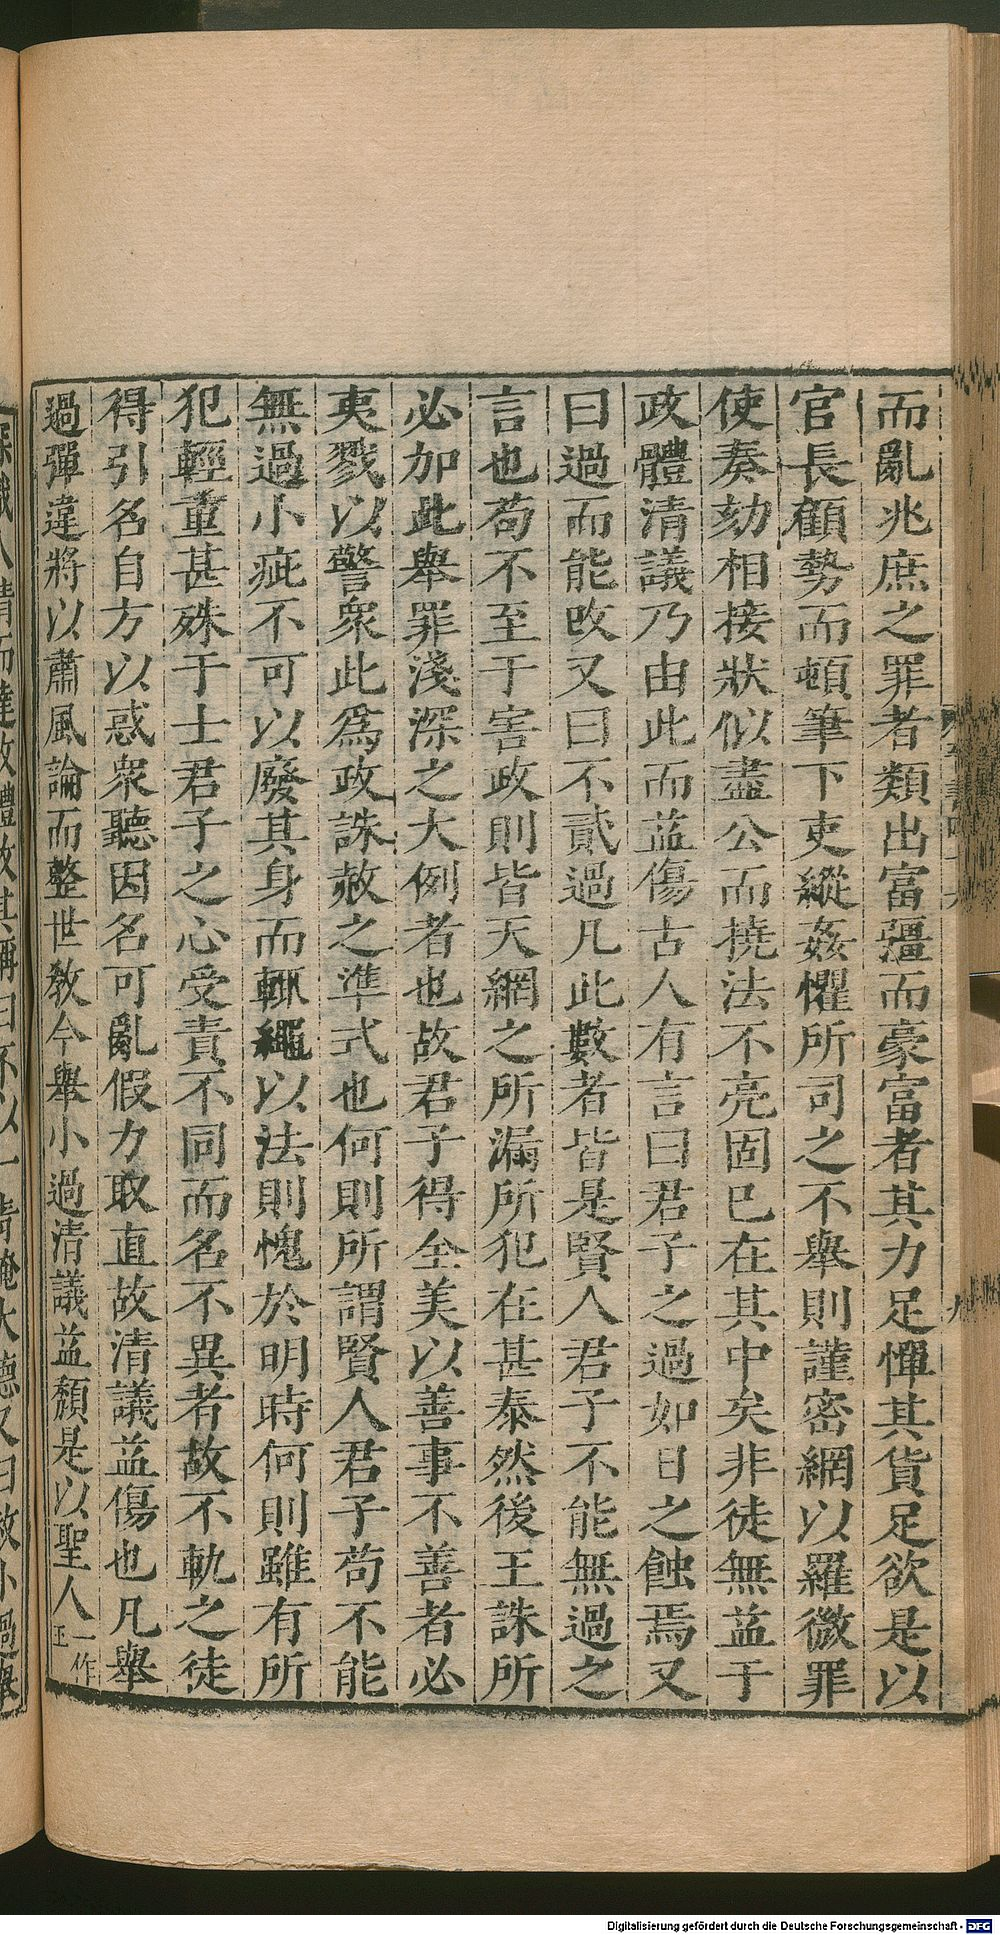 而亂兆庶之罪者類出富彊而豪富者其力足憚其貨足欲是以
官長顧勢而頓筆下吏縱姦懼所司之不舉則謹密網以羅微罪
使奏劾相接狀似盡公而撓法不亮固已在其中矣非徒無益于
政體清議乃由此而益傷古人有言曰君子之過如日之蝕焉又
曰過而能改又曰不貳過凡此數者皆是賢人君子不能無過之
言也苟不至于害政則皆天網之所漏所犯在甚泰然後王誅所
必加此舉罪淺深之大例者也故君子得全美以善事不善者必
夷戮以警衆此爲政誅赦之準式也何則所謂賢人君子苟不能
無過小疵不可以廢其身而輒繩以法則愧於明時何則雖有所
犯輕重甚殊于士君子之心受責不同而名不異者故不軌之徒
得引名自方以惑衆聽因名可亂假力取直故清議益傷也凡舉
過彈違將以肅風論而整世教今舉小過清議益頹是以聖人一作王
Digitalisierung gefördert durch die Deutsche Forschungsgemeinschaft - DFG